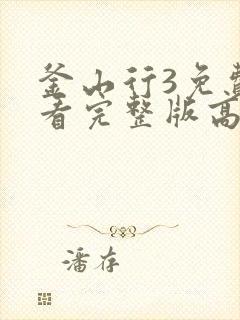 釜山行3免费
看完整版高
潘存